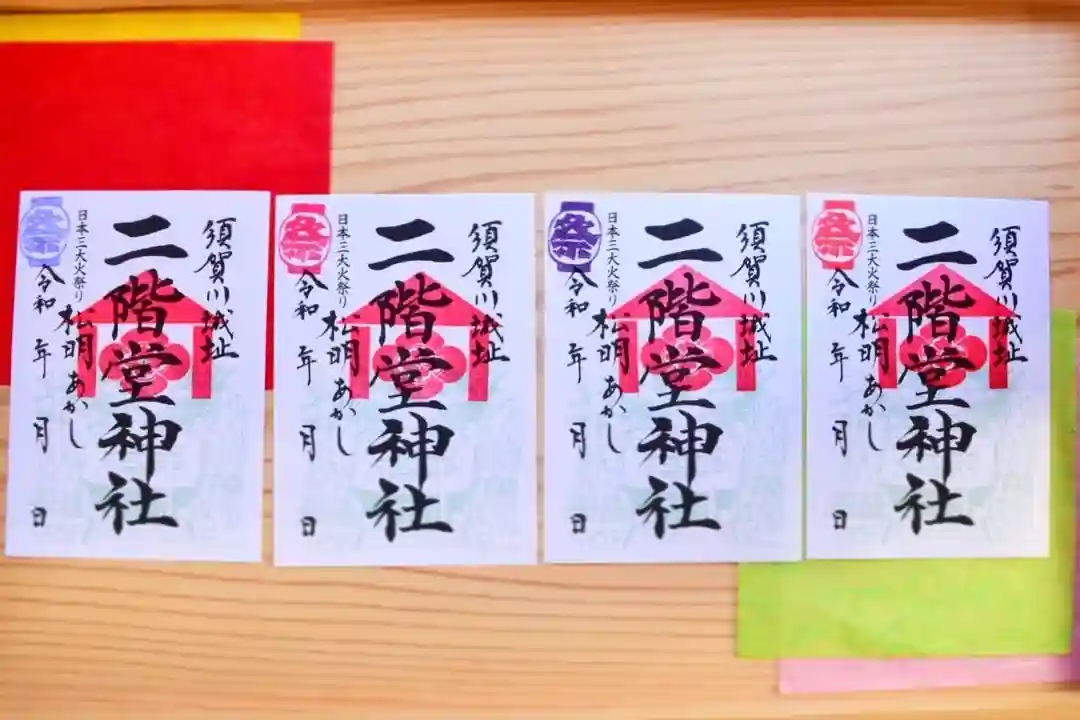 須賀川城址
二階堂神社
日本三大火祭り
松明あかし
令和 年 月 日
祭
須賀川城址
二階堂神社
日本三大火祭り
松明あかし
令和 年 月 日
祭
須賀川城址
二階堂神社
日本三大火祭り
松明あかし
令和 年 月 日
祭
須賀川城址
二階堂神社
日本三大火祭り
松明あかし
令和 年 月 日
祭